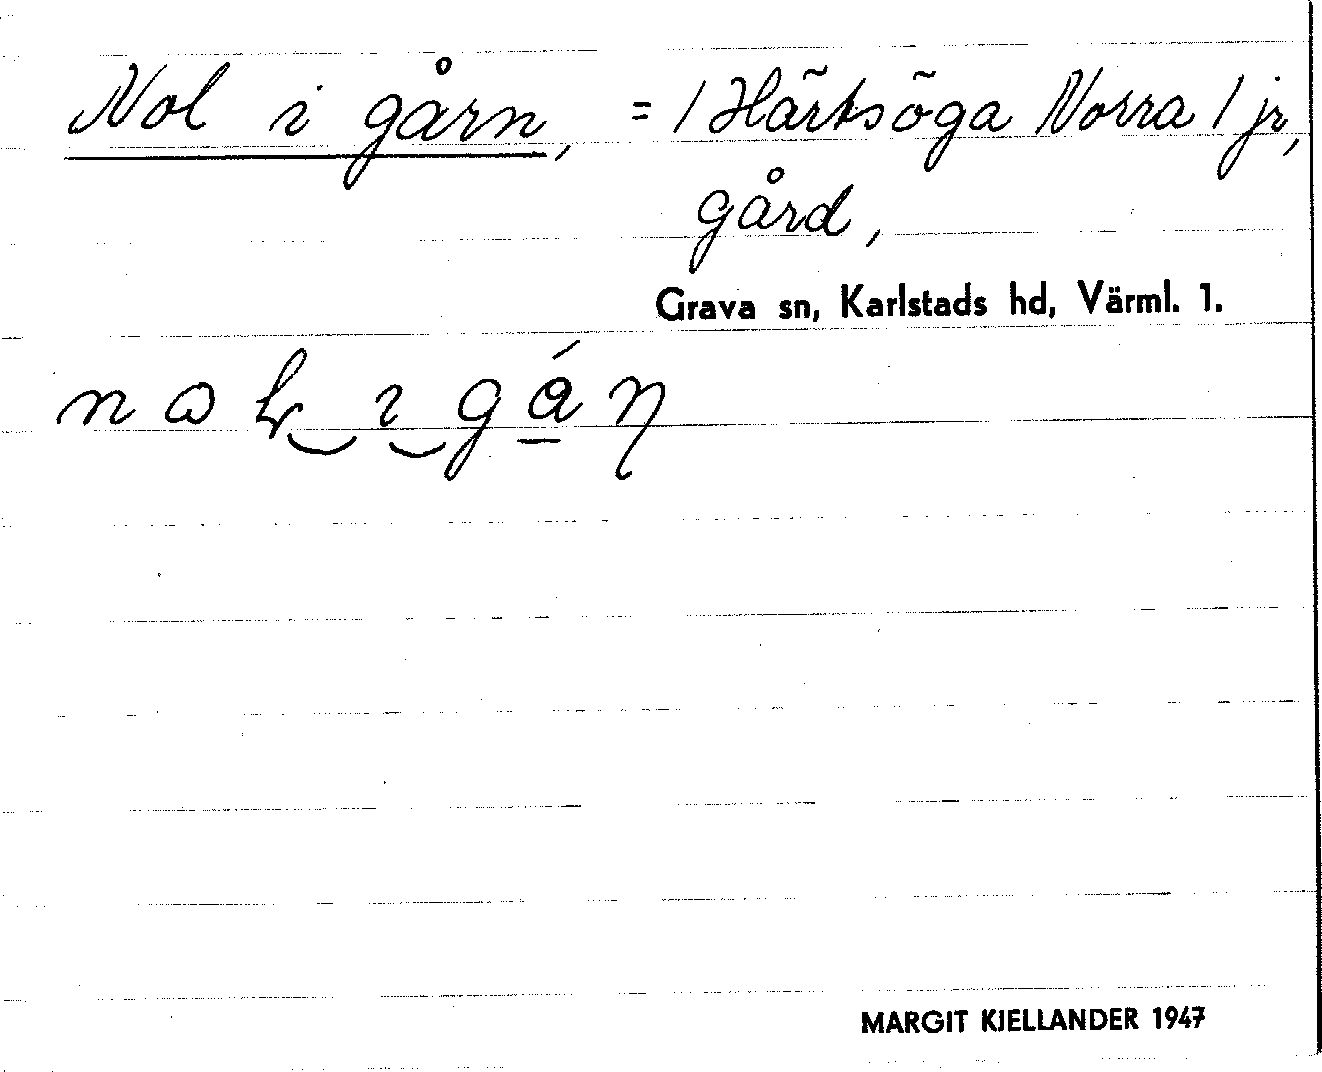 Nol i gårn, = / Härtsöga Norra / jr,
gård,
Grava sn, Karlstads hd, Värml. 1.
MARGIT KJELLANDER 1947